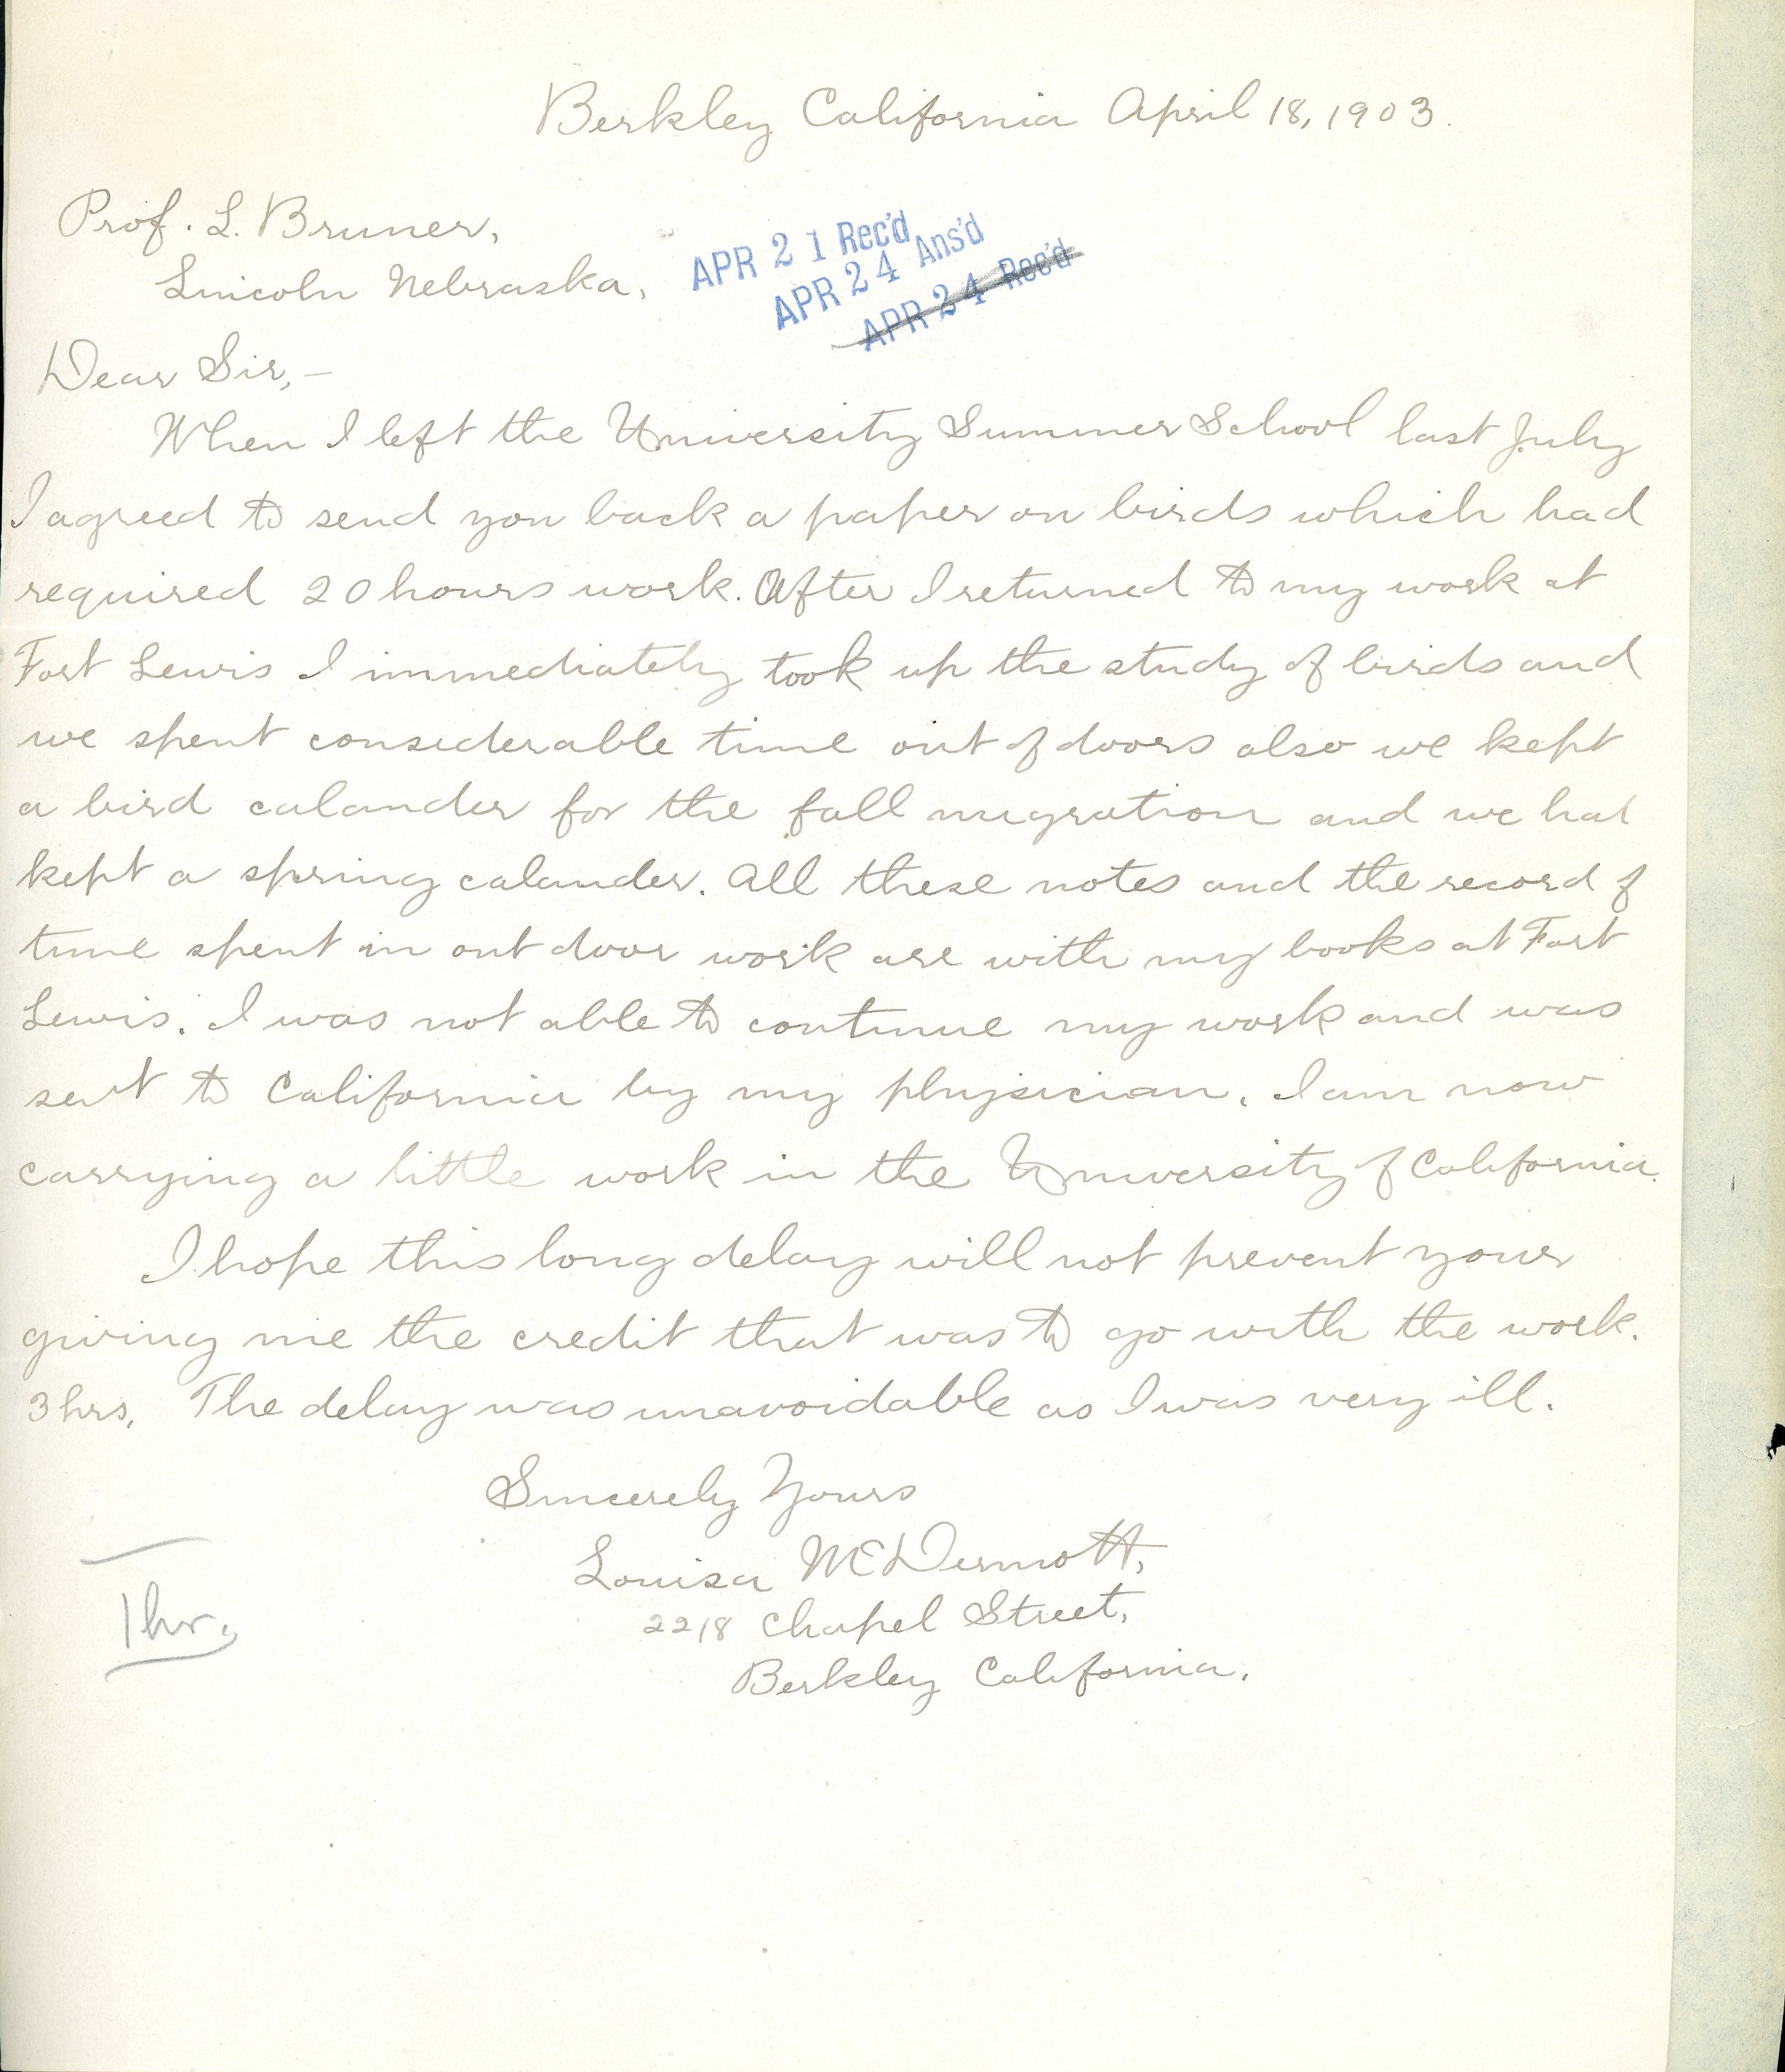 Berkley California April 18, 1903.
Prof. L. Bruner,
Lincoln Nebraska,
APR 21 Rec'd
APR 24 Ans'd
APR 24 Rec'd
Dear Sir,—
When I left the University Summer School last July
I agreed to send you back a paper on birds which had
required 20 hours work. After I returned to my work at
Fort Lewis I immediately took up the study of birds and
we spent considerable time out of doors also we kept
a bird calander for the fall migration and we had
kept a spring calander. All these notes and the record of
time spent in out door work are with my books at Fort
Lewis. I was not able to continue my work and was
sent to California by my physician. I am now
carrying a little work in the University of California.
I hope this long delay will not prevent your
giving me the credit that was to go with the work.
3 hrs. The delay was unavoidable as I was very ill.
Sincerely Yours
Louisa McDermott,
2218 Chapel Street,
Berkley California.
1 hr.